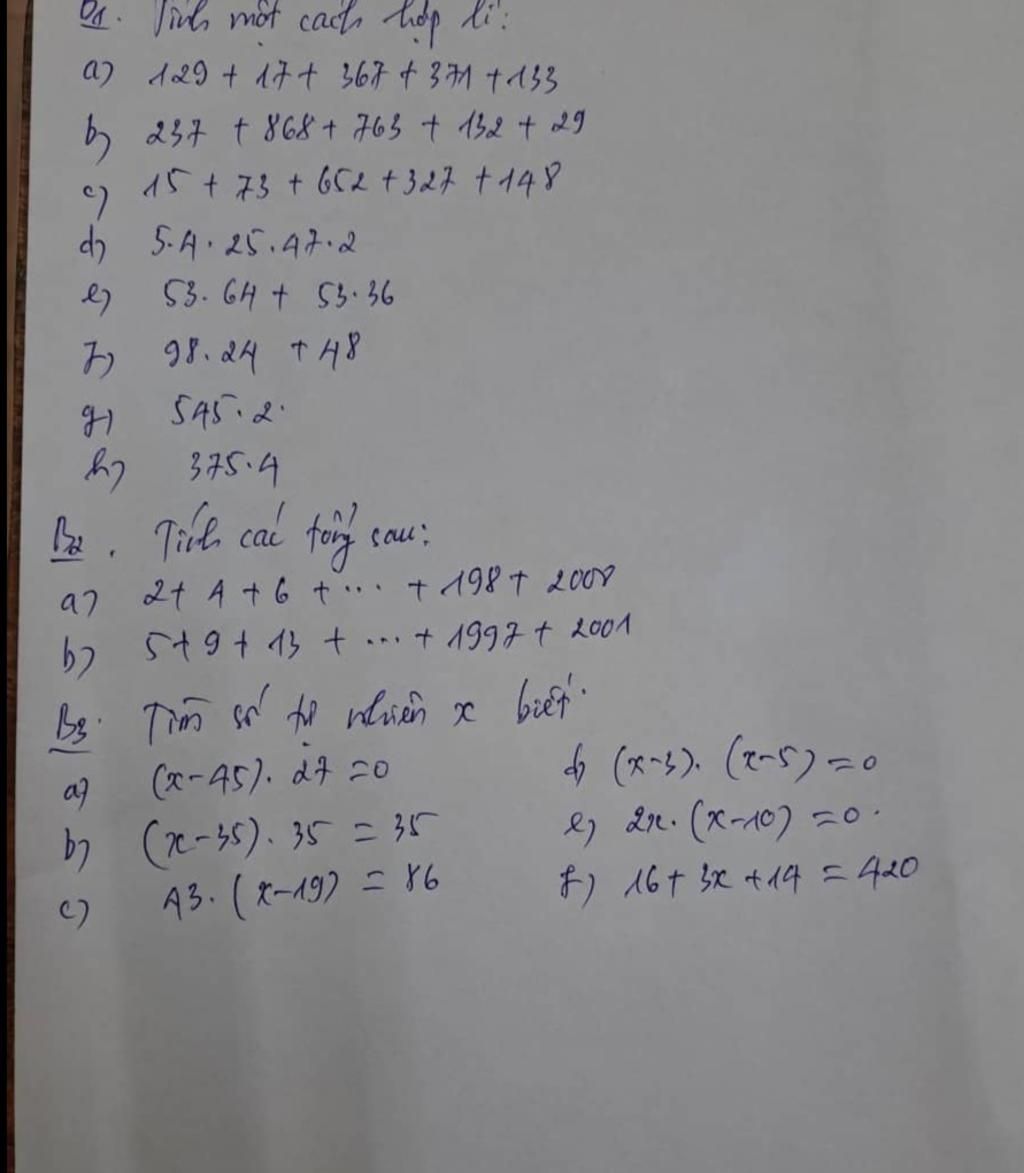 B1. Tính một cách hợp lí:
a) 129 + 17 + 367 + 371 + 133
b) 237 + 868 + 763 + 132 + 29
c) 15 + 73 + 652 + 327 + 148
d) 5.4.25.47.2
e) 53.64 + 53.36
f) 98.24 + 48
g) 545.2.
h) 375.4
B2. Tính các tổng sau:
a) 2 + 4 + 6 + ... + 198 + 2008
b) 5 + 9 + 13 + ... + 1997 + 2001
B3. Tìm số tự nhiên x biết.
a) (x-45).27 = 0
d) (x-3).(x-5) = 0
b) (x-35).35 = 35
e) 2x.(x-10) = 0.
c) 43.(x-19) = 86
f) 16 + 3x + 14 = 420